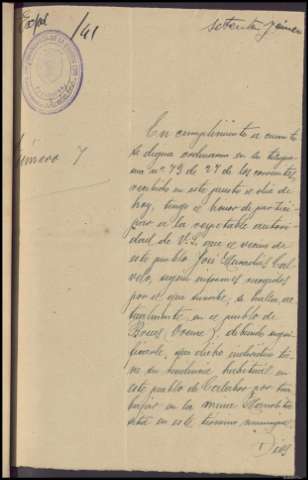 Expd /41
setenta y cinco
Número 7
En cumplimiento a cuanto
se digna ordenarme en su telegra-
ma nº 73 de 27 de los corrientes,
recibido en este puesto el dia de
hoy, tengo el honor de partici-
par a la respetable autori-
dad de V.S. que el vecino de
este pueblo José
según informes recogidos
por el que suscribe, se halla ac-
tualmente, en el pueblo de
debiendo signi-
ficarle, que dicho individuo tie-
ne su residencia habitual en
este pueblo de por tra-
bajar en la mina
sita en este término municipal.
Dios